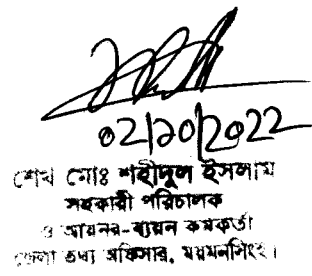 02/10/2022
শেখ মোঃ শহীদুল ইসলাম
সহকারী পরিচালক
ও আয়ন-ব্যয়ন কর্মকর্তা
জেলা তথ্য অফিসার, ময়মনসিংহ।